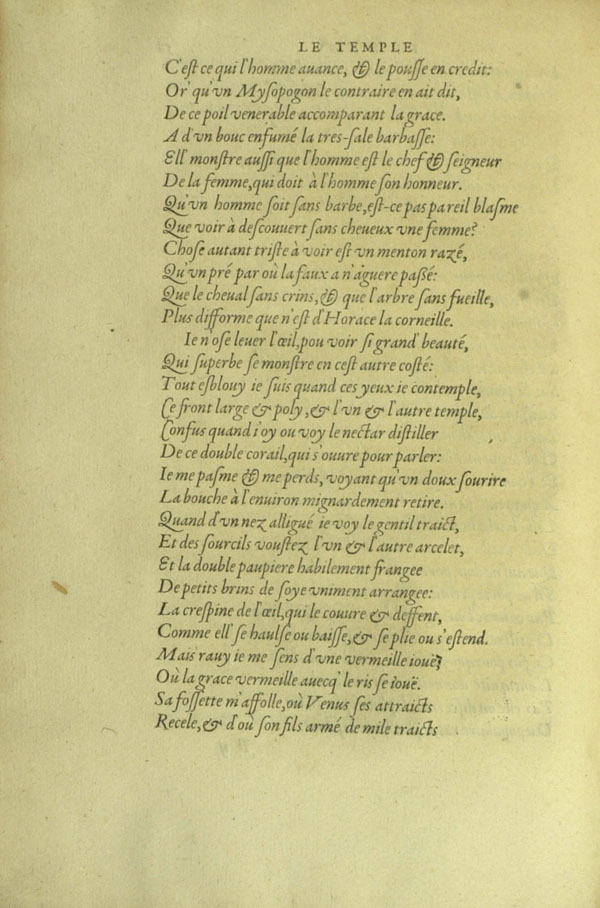 LE TEMPLE
C'eſt ce qui l'homme auance, & le pouſſe en credit:
Or' qu'vn Myſopogon le contraire en ait dit,
De ce poil venerable accomparant la grace.
A d'vn bouc enfumé la tres-ſale barbaſſe:
Ell' monſtre auſſi que l'homme eſt le chef & ſeigneur
De la femme, qui doit à l'homme ſon honneur.
Qu'vn homme ſoit ſans barbe, eſt-ce pas pareil blaſme
Que voir à deſcouuert ſans cheueux vne femme?
Choſe autant triſte à voir eſt vn menton razé,
Qu'vn pré par où la faux a n'aguere paſſé:
Que le cheual ſans crins, & que l'arbre ſans fueille,
Plus difforme que n'eſt d'Horace la corneille.
Ie n'oſe leuer l'œil, pou voir ſi grand' beauté,
Qui ſuperbe ſe monſtre en ceſt autre coſté:
Tout eſblouy ie ſuis quand ces yeux ie contemple,
Ce front large & poly, & l'vn & l'autre temple,
Confus quand i'oy ou voy le nectar diſtiller
De ce double corail, qui s'ouure pour parler:
Ie me paſme & me perds, voyant qu'vn doux ſourire
La bouche à l'enuiron mignardement retire.
Quand d'vn nez alligué ie voy le gentil traict,
Et des ſourcils vouſtez l'vn & l'autre arcelet,
Et la double paupiere habilement frangee
De petits brins de ſoye vniment arrangee:
La creſpine de l'œil, qui le couure & deffent,
Comme ell' ſe haulſe ou baiſſe, & ſe plie ou s'eſtend.
Mais rauy ie me ſens d'vne vermeille iouë,
Où la grace vermeille auecq' le ris ſe iouë.
Sa foſſette m'affolle, où Venus ſes attraicts
Recele, & d'où ſon fils armé de mile traicts